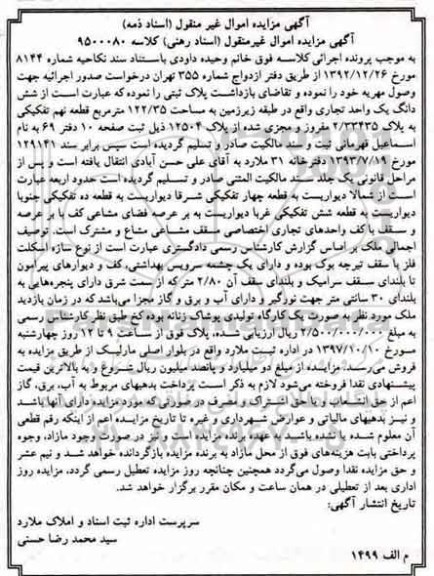 آگهی مزایده اموال غیر منقول (اسناد ذمه)
آگهی مزایده اموال غیرمنقول (اسناد رهنی) کلاسه ۹۵۰۰۰۸۰
به موجب پرونده اجرائی کلاسه فوق خانم وحیده داودی باستناد سند نکاحیه شماره ۸۱۴۴
مورخ ۱۳۹۲/۱۲/۲۶ از طریق دفتر ازدواج شماره ۳۵۵ تهران درخواست صدور اجرائیه جهت
وصول مهریه خود را نموده و تقاضای بازداشت پلاک ثبتی را نموده که عبارت است از شش
دانگ یک واحد تجاری واقع در طبقه زیرزمین به مساحت ۱۲۲/۳۵ مترمربع قطعه نهم تفکیکی
به پلاک ۱/۳۳۴۳۵ مفروز و مجزی شده از پلاک ۱۲۵۰۴ ذیل ثبت صفحه ۱۰ دفتر ۶۹ به نام
اسماعیل قهرمانی ثبت و سند مالکیت صادر و تسلیم گردیده است سپس برابر سند ۱۲۹۱۴۱
مورخ ۱۳۹۳/۷/۱۹ دفترخانه ۳۱ ملارد به آقای علی حسن آبادی انتقال یافته است و پس از
مراحل قانونی یک جلد سند مالکیت المثنی صادر و تسلیم گردیده است حدود اربعه عبارت
است از شمالا دیواریست به قطعه چهار تفکیکی شرقا دیواریست به قطعه ده تفکیکی جنوبا
دیواریست به قطعه شش تفکیکی غربا دیواریست به بر عرصه فضای مشاعی کف با بر عرصه
و سقف با کف واحدهای تجاری اختصاصی سقف مشاعی مشاع و مشترک است. توصیف
اجمالی ملک بر اساس گزارش کارشناس رسمی دادگستری عبارت است از نوع سازه اسکلت
فلز با سقف تیرچه بوک بوده و دارای یک چشمه سرویس بهداشتی، کف و دیوارهای پیرامون
تا بلندای سقف سرامیک و بلندای سقف آن ۲/۸۰ متر که از سمت شرق دارای پنجره‌هایی به
بلندای ۳۰ سانتی متر جهت نورگیر و دارای آب و برق و گاز مجزا می‌باشد که در زمان بازدید
ملک مورد نظر به صورت یک کارگاه تولیدی پوشاک زنانه بوده کخ طبق نظر کارشناس رسمی
به مبلغ ۲/۵۰۰/۰۰۰/۰۰۰ ریال ارزیابی شده، پلاک فوق از ساعت ۹ تا ۱۲ روز چهارشنبه
مورخ ۱۳۹۷/۱۰/۱۰ در اداره ثبت ملارد واقع در بلوار اصلی مارلیک از طریق مزایده به
فروش می‌رسد. مزایده از مبلغ دو میلیارد و پانصد میلیون ریال شروع و به بالاترین قیمت
پیشنهادی نقدا فروخته می‌شود لازم به ذکر است پرداخت بدهیهای مربوط به آب، برق، گاز
اعم از حق انشعاب و یا حق اشتراک و مصرف در صورتی که مورد مزایده دارای آنها باشد
و نیز بدهیهای مالیاتی و عوارض شهرداری و غیره تا تاریخ مزایده اعم از اینکه رقم قطعی
آن معلوم شده یا نشده باشد به عهده برنده مزایده است و نیز در صورت وجود مازاد، وجوه
پرداختی بابت هزینه‌های فوق از محل مازاد به برنده مزایده بازگردانده خواهد شد و نیم عشر
و حق مزایده نقدا وصول می‌گردد همچنین چنانچه روز مزایده تعطیل رسمی گردد، مزایده روز
اداری بعد از تعطیلی در همان ساعت و مکان مقرر برگزار خواهد شد.
تاریخ انتشار آگهی:
سرپرست اداره ثبت اسناد و املاک ملارد
سید محمد رضا حسنی
م الف ۱۴۹۹